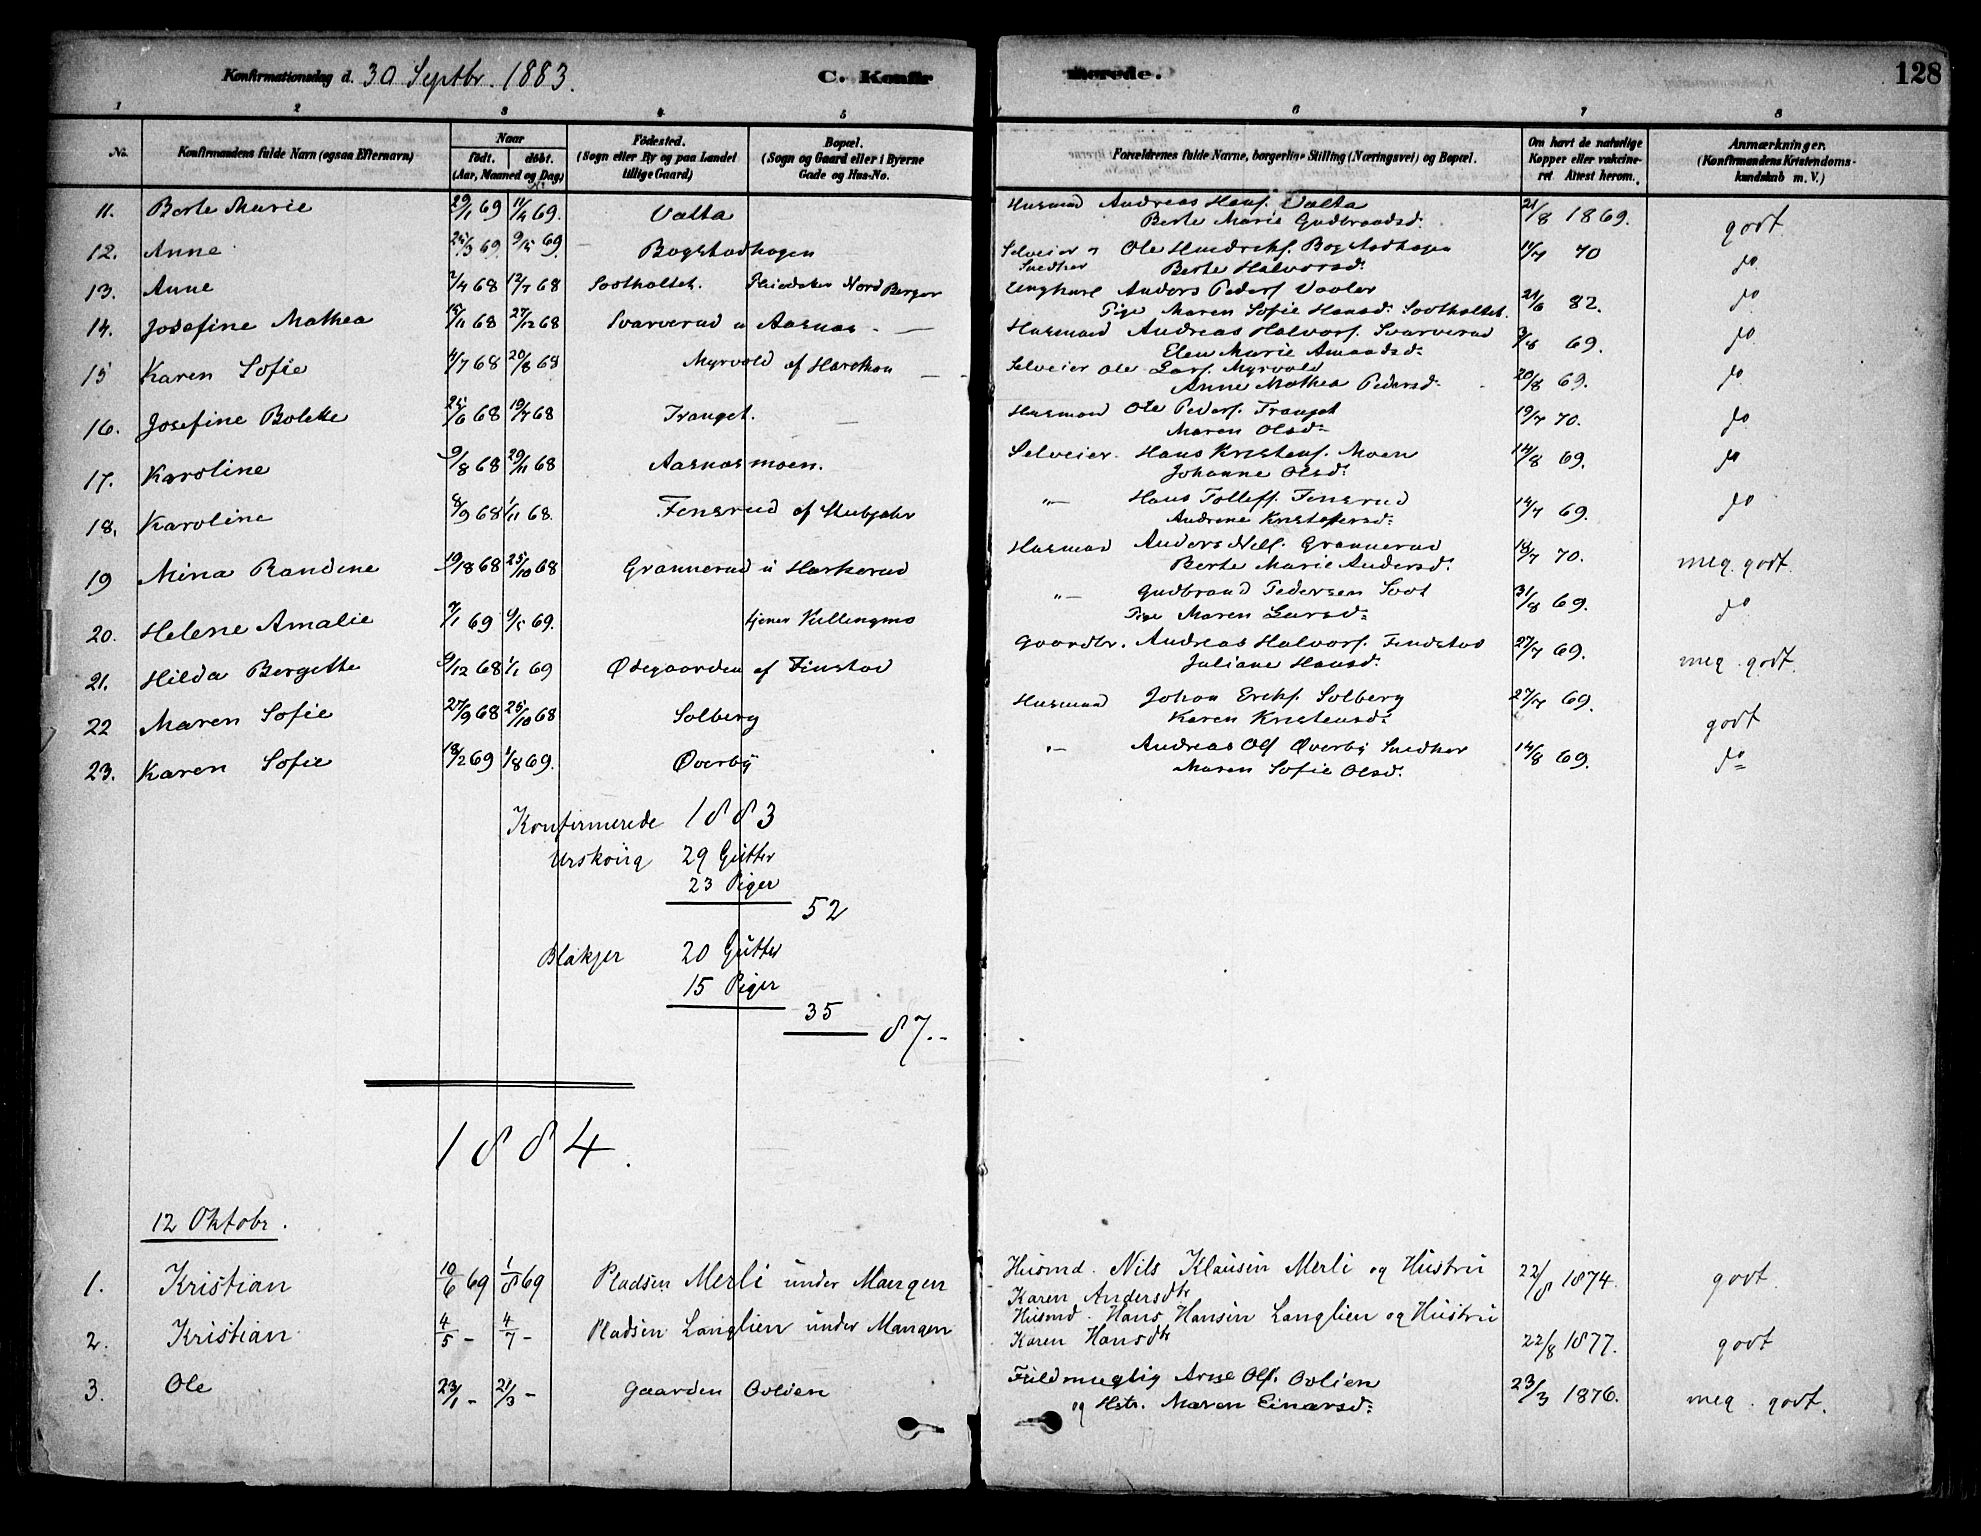 Konfirmationsdag d. 30 Septbr. 1883. C. Konfirmerede. 128
1 2 3 4 5 6 7 8
No. Konfirmandens fulde Navn (ogsaa Efternavn) Naar født. døbt. (Aar, Maaned og Dag) Fødested. (Sogn eller By og paa Landet tillige Gaard) Bopæl. (Sogn og Gaard eller i Byerne Gade og Hus-No. Forældrenes fulde Navne, borgerlige Stilling (Næringsvei) og Bopæl. Om havt de naturlige Kopper eller vaccineret Attest herom. Anmærkninger. (Konfirmandens Kristendomskundskab m. V.)
11. Berte Marie 29/1 69 11/4 69. Valta Husmand Andreas Hans. Valta 21/8 1869. godt
Berte Marie Gudbrandsd.
12. Anne 25/3 69. 9/5 69. Bogstadhagen Selveier og Snedker Ole Hendreks. Bogstadhagen 11/7 70 do
Berte Halvorsd:
13. Anne 2/4 68 12/7 68 Sootholtet. Nord Berger Ungkarl Anders Peders. Vaaler 21/6 82. do
Pige Maren Sofie Hansd: Sootholtet.
14. Josefine Mathea 15/11 68 27/12 68 Svarverud u Aarnæs Husmand Andreas Halvors. Svarverud 3/8 69. do
Elen Marie Amundsd:
15 Karen Sofie 4/7 68 20/8 68 Myrvold af Harkhou Selveier Ole Lars. Myrvold 20/8 69. do
Anne Mathea Pedersd.
16. Josefine Bolette 25/6 68 19/7 68 Tranget. Husmand Ole Peders. Tranget 19/7 70. do
Maren Olsd:
17. Karoline 9/8 68 29/11 68 Aarnæsmoen. Selveier. Hans Kristens. Moen 14/8 69. do
Johanne Olsd:
18. Karoline 8/9 68 1/11 68. Fensrud af Skubjohr "- Hans Tollefs. Fensrud 14/7 69. do
Andrine Kristofersd:
19 Mina Randine 19/8 68 25/10 68 Grannerud u Harkerud Husmand Anders Nils. Grannerud 18/7 70. meg. godt.
Berte Marie Andersd.
20. Helene Amalie 7/1 69 6/5 69. tjener Killingmo "- Gudbrand Pedersen Soot 31/8 69. do
Pige Maren Larsd:
21. Hilda Bergette 9/12 68 1/1 69 Ødegaarden af Finstad Gaardbr. Andreas Halvors. Finstad 27/7 69. meg. godt.
Juliane Hansd:
22 Maren Sofie 27/9 68 25/10 68 Solberg Husmand Johan Ereks. Solberg 27/7 69. godt
Karen Kristensd:
23. Karen Sofie 18/2 69 1/8 69. Øverby "- Andreas Ols. Øverby Snedker 14/8 69. do
Maren Sofie Olsd.
Konfirmerede 1883
Urskoug 29 Gutter
23 Piger
52
Blakjer 20 Gutter
15 Piger
35
87.-
1884.
12 Oktobr.
1. Kristian 10/6 69 1/8 69 Pladsen Merli under Mangen Husmd. Nils Klausen Merli og Hustru 22/8 1874. godt
Karen Andersdtr
2. Kristian 4/5 - 4/7 - Pladsen Langlien under Mangen Husmd. Hans Hansen Langlien og Hustru
Karen Hansdtr 22/8 1877. godt
3. Ole 23/1 - 21/3 - Gaarden Ovlien Fuldmægtig Arne Ols. Ovlien 23/3 1876. meg. godt.
og Hstr. Maren Einarsd: